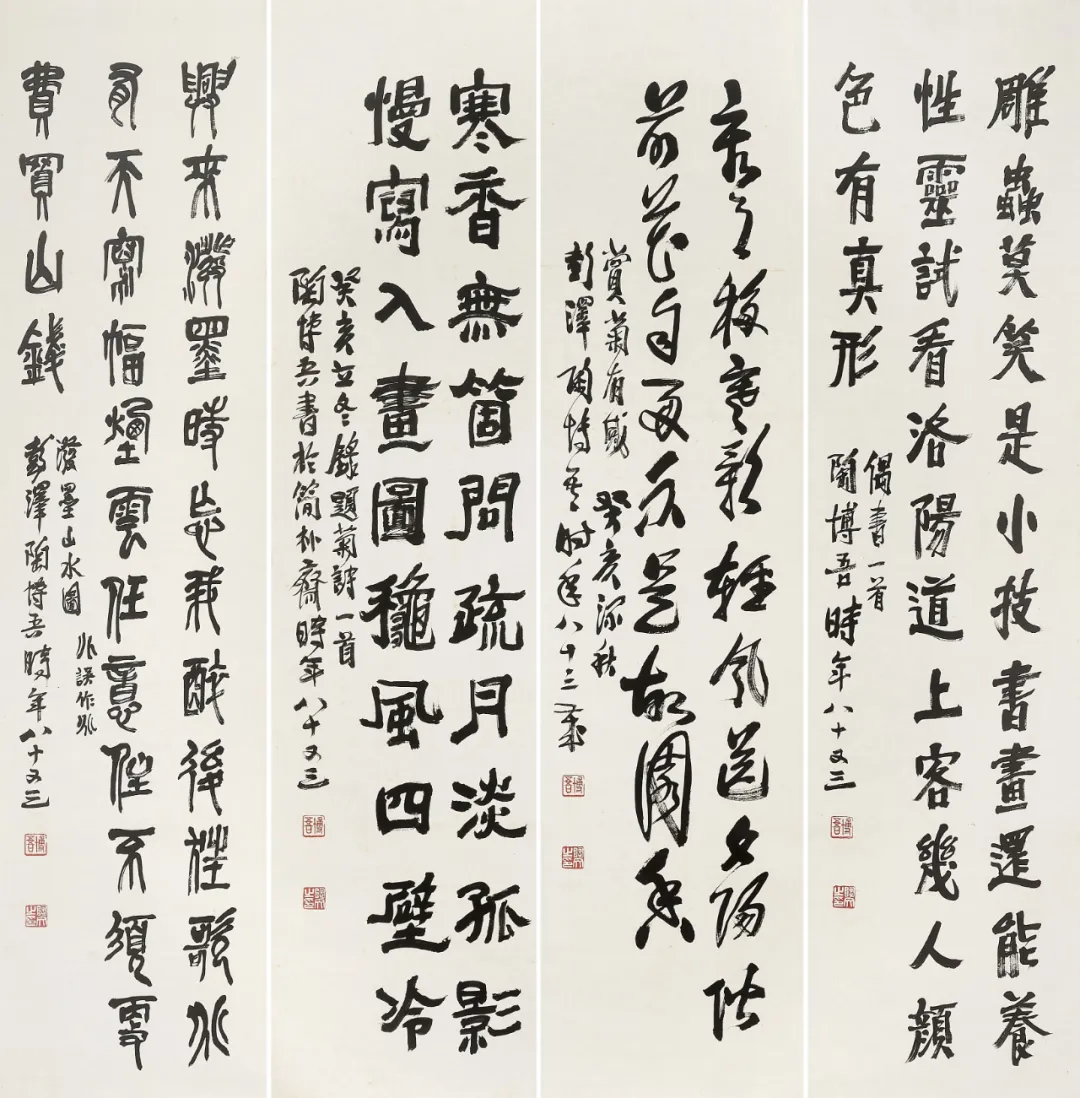 雕蟲莫笑是小技書畫還能養
性靈試看洛陽道上客幾人顏
色有真形
偶書一首
陶博吾時年八十又三
移寒影輕風送夕陽階
前花自是故園香
賞菊有感 癸亥深秋
彭澤陶博吾時年八十三歲
寒香無箇問疏月淡孤影
慢寫入畫圖龝風四壁冷
癸亥立冬錄題菊詩一首
陶博吾書於簡朴齋時年八十又三
興來潑墨時忘我醉後狂歌
有天寫幅煙雲任意不須更
費買山錢
潑墨山水圖 誤作
彭澤陶博吾時年八十又三